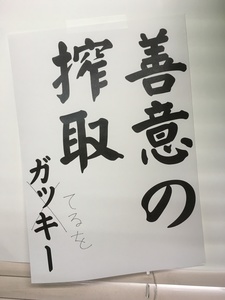 善意の
搾取
ガッキー
てるを